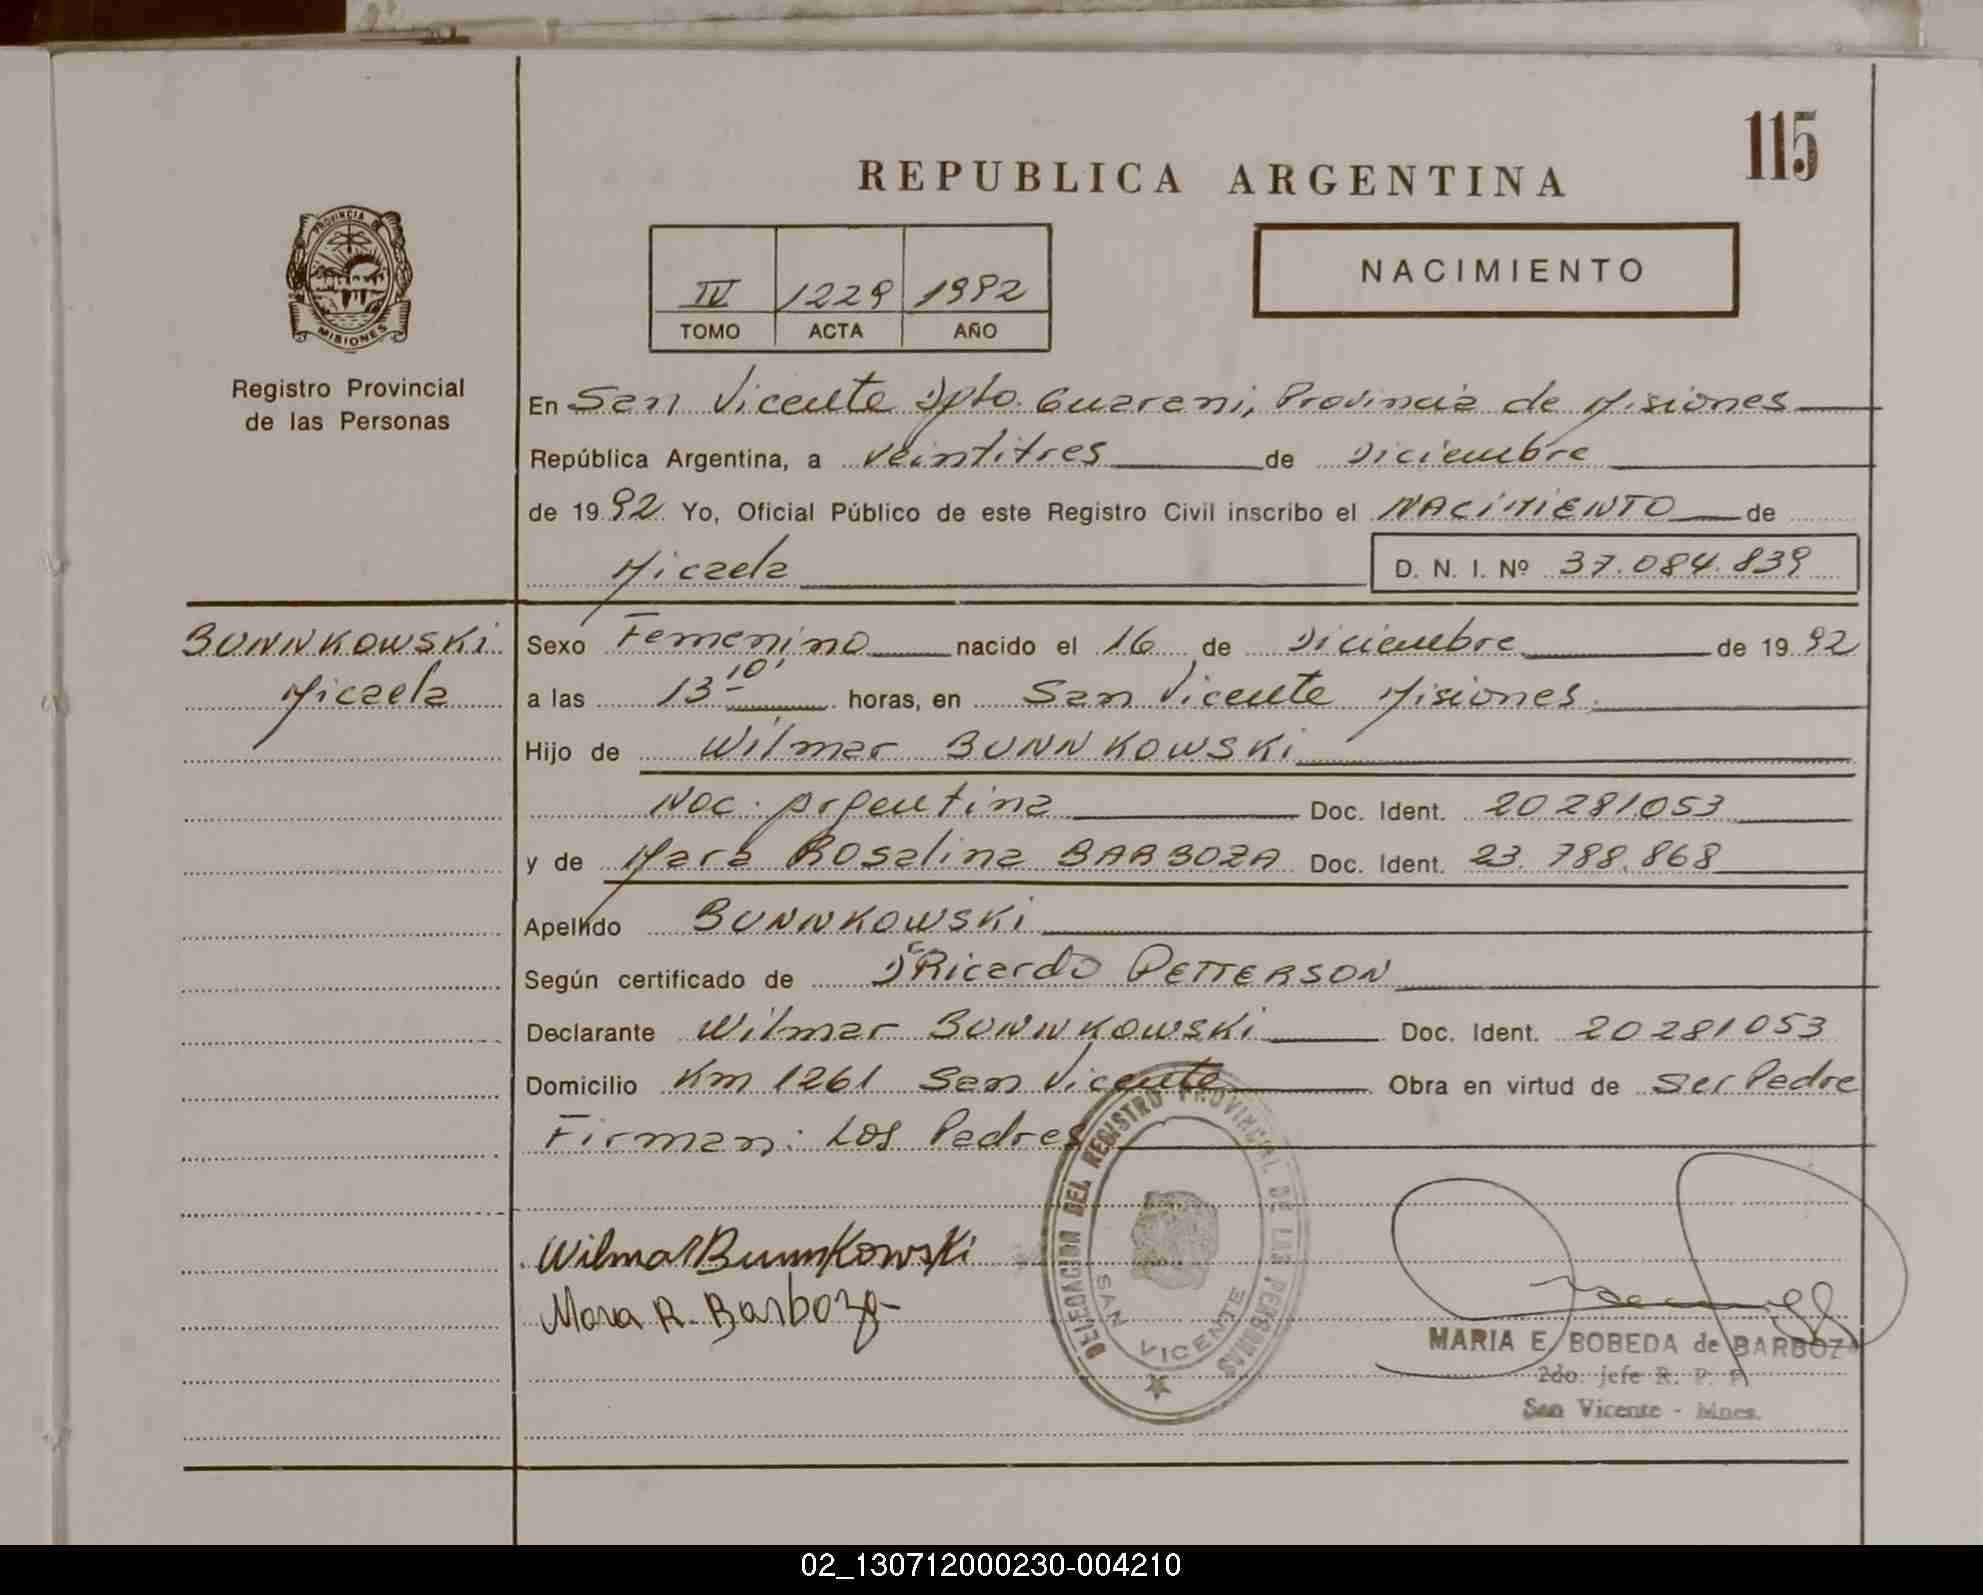 115
REPUBLICA ARGENTINA
NACIMIENTO
IV 1229 1992
TOMO ACTA AÑO
PROVINCIA DE
MISIONES
Registro Provincial
de las Personas
En San Vicente Dpto. Guarani, Provincia de Misiones
República Argentina, a veintitres de Diciembre
de 1992 Yo, Oficial Público de este Registro Civil inscribo el NACIMIENTO de
Micaela D. N. I. Nº 37.084.839
BUNNKOWSKi
Micaela
Sexo Femenino nacido el 16 de Diciembre de 1992
a las 13 10' horas, en San Vicente Misiones
Hijo de Wilmar BUNNKOWSKi
Nac. Argentina Doc. Ident. 20281053
y de Mara Rosalina BARBOZA Doc. Ident. 23.788.868
Apellido BUNNKOWSKi
Según certificado de Dr Ricardo PETTERSON
Declarante Wilmar BUNNKOWSKi Doc. Ident. 20281053
Domicilio Km 1261 San Vicente Obra en virtud de ser Padre
Firman: Los Padres
Wilmar BunnKowski
Mara R. Barboza
DELEGACION DEL REGISTRO PROVINCIAL DE LAS PERSONAS
SAN VICENTE
MARIA E. BOBEDA de BARBOZA
2do. Jefe R. P. P.
San Vicente - Mnes.
02_130712000230-004210